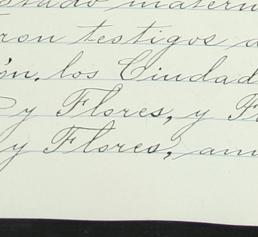 stado matern
ron testigos a
ón, los Ciudad
y Flores, y F
y Flores, am